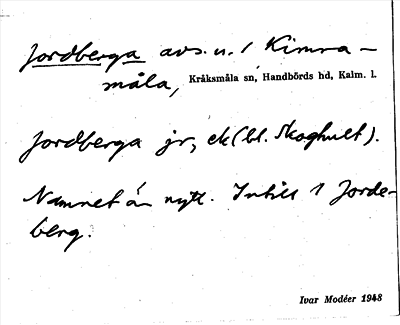 Jordberga avs. u. 1 Kimra-
måla, Kråksmåla sn, Handbörds hd, Kalm. l.
Jordberga jr, ek (bl. Skoghult).
Namnet är nytt. Intill 1 Jorde-
berg.
Ivar Modéer 1948